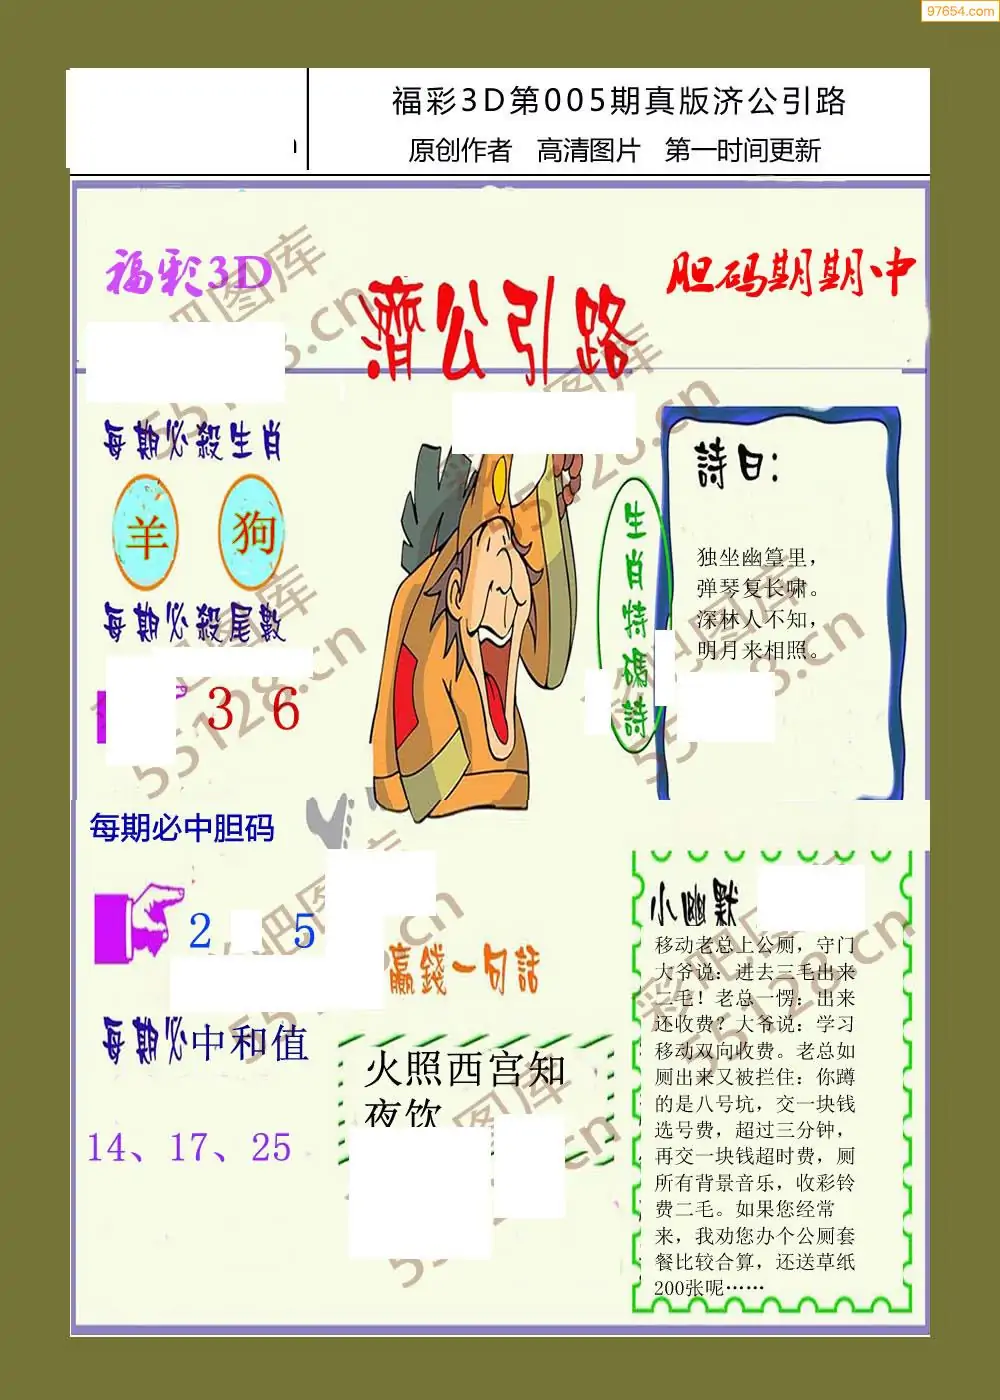 97654.com
福彩3D第005期真版济公引路
原创作者 高清图片 第一时间更新
福彩3D
濟公引路
胆码期期中
每期必殺生肖
羊 狗
每期必殺尾數
3 6
生肖特碼詩
詩曰：
独坐幽篁里，
弹琴复长啸。
深林人不知，
明月来相照。
每期必中胆码
2 5
每期必中和值
14、17、25
赢錢一句話
火照西宫知
夜饮
小幽默
移动老总上公厕，守门
大爷说：进去三毛出来
二毛！老总一愣：出来
还收费？大爷说：学习
移动双向收费。老总如
厕出来又被拦住：你蹲
的是八号坑，交一块钱
选号费，超过三分钟，
再交一块钱超时费，厕
所有背景音乐，收彩铃
费二毛。如果您经常
来，我劝您办个公厕套
餐比较合算，还送草纸
200张呢……
彩吧图库
55128.cn